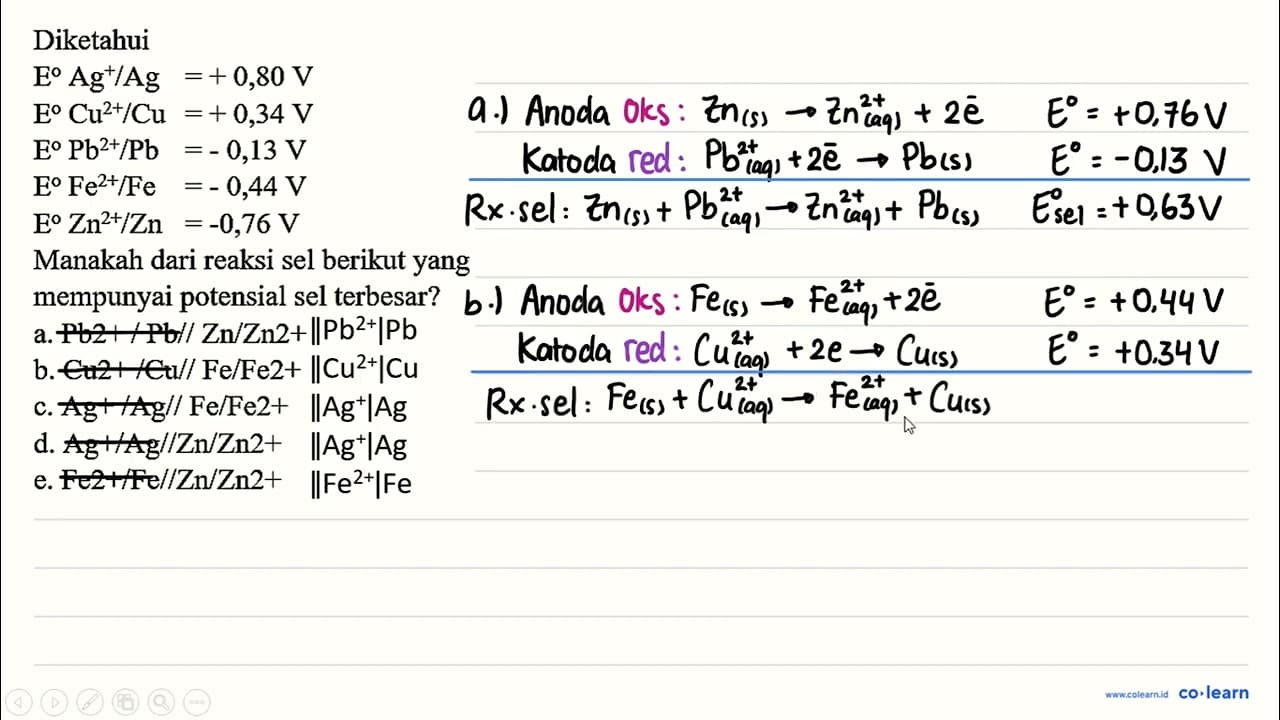 Diketahui
E° Ag⁺/Ag = + 0,80 V
E° Cu²⁺/Cu = + 0,34 V
E° Pb²⁺/Pb = - 0,13 V
E° Fe²⁺/Fe = - 0,44 V
E° Zn²⁺/Zn = -0,76 V
Manakah dari reaksi sel berikut yang
mempunyai potensial sel terbesar?
a. Pb2+ / Pb// Zn/Zn2+ ||Pb²⁺|Pb
b. Cu2+ /Cu// Fe/Fe2+ ||Cu²⁺|Cu
c. Ag+ /Ag// Fe/Fe2+ ||Ag⁺|Ag
d. Ag+/Ag//Zn/Zn2+ ||Ag⁺|Ag
e. Fe2+/Fe//Zn/Zn2+ ||Fe²⁺|Fe
a.) Anoda Oks : Zn(s) → Zn²⁺(aq) + 2ē E° = +0,76 V
Katoda red : Pb²⁺(aq) + 2ē → Pb(s) E° = -0,13 V
Rx.sel : Zn(s) + Pb²⁺(aq) → Zn²⁺(aq) + Pb(s) E°sel = +0,63 V
b.) Anoda Oks : Fe(s) → Fe²⁺(aq) + 2ē E° = +0.44 V
Katoda red : Cu²⁺(aq) + 2e → Cu(s) E° = +0.34 V
Rx.sel : Fe(s) + Cu²⁺(aq) → Fe²⁺(aq) + Cu(s)
www.colearn.id co·learn